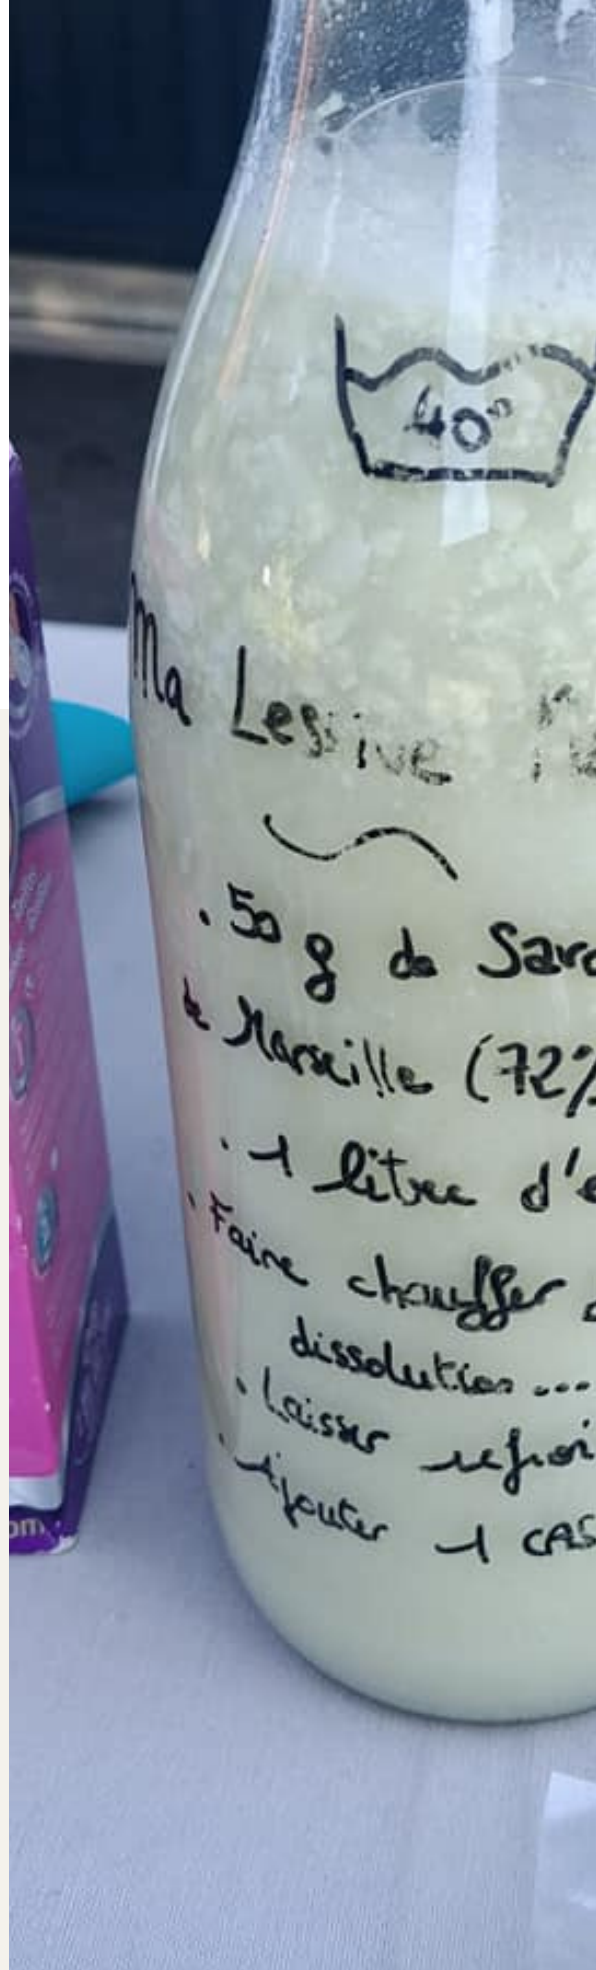 40°
Ma Lessive
. 50 g de Savo
de Marseille (72%
. 1 litre d'e
. Faire chauffer
dissolution ...
. Laisser refroi
. Ajouter 1 CAS
om